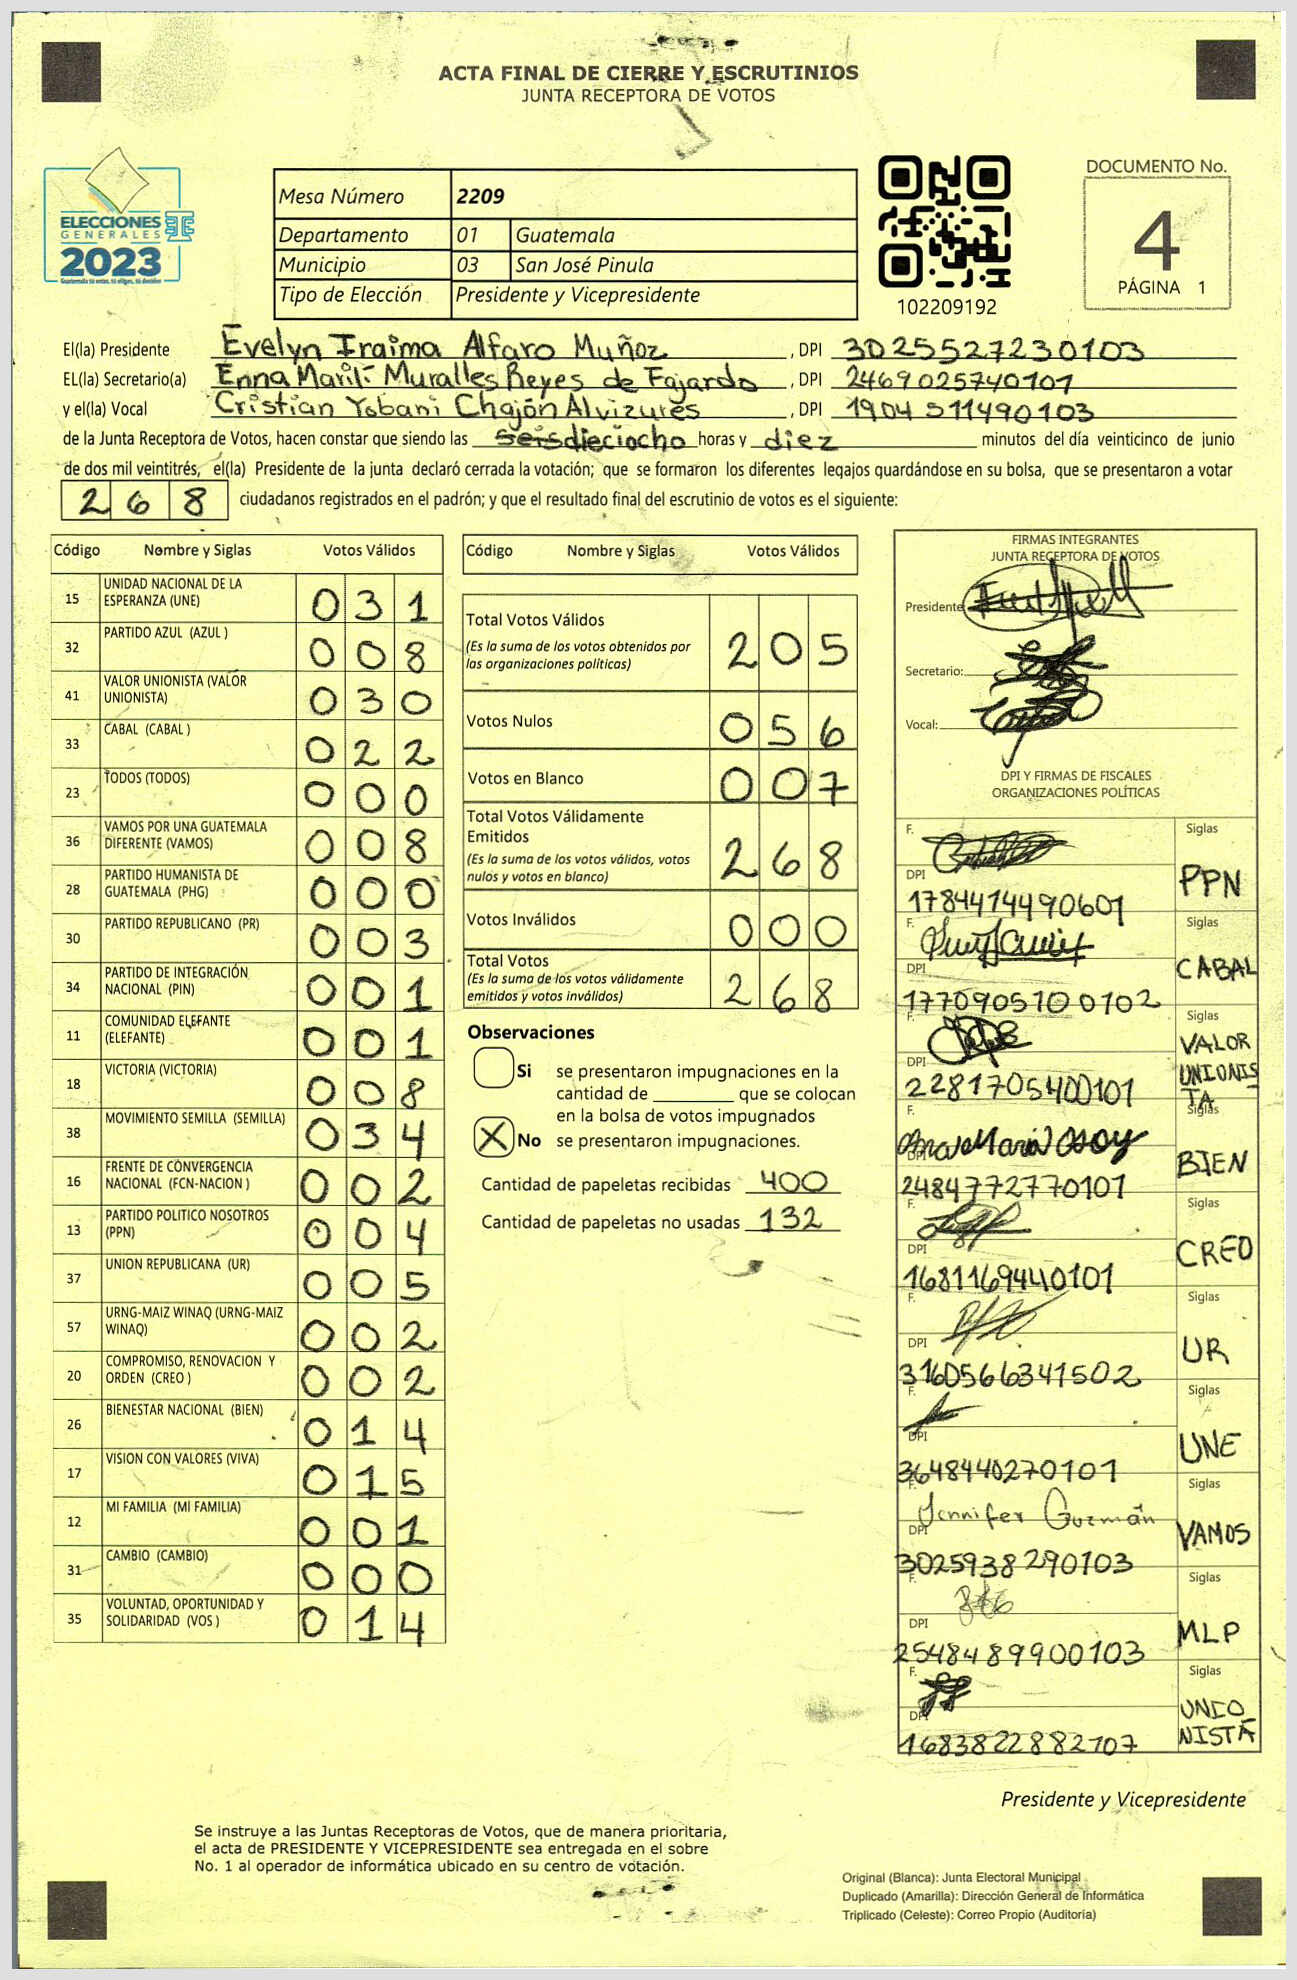 ACTA FINAL DE CIERRE Y ESCRUTINIOS
JUNTA RECEPTORA DE VOTOS
ELECCIONES
GENERALES
2023
Mesa Número 2209
Departamento 01 Guatemala
Municipio 03 San José Pinula
Tipo de Elección Presidente y Vicepresidente
102209192
DOCUMENTO No.
4
PÁGINA 1
El(la) Presidente Evelyn Iraima Alfaro Muñoz, DPI 3025527230103
EL(la) Secretario(a) Enna Marilí Muralles Reyes de Fajardo, DPI 2469025740101
y el(la) Vocal Cristian Yobani Chajón Alvizures, DPI 1904511490103
de la Junta Receptora de Votos, hacen constar que siendo las seisdieciocho horas y diez minutos del día veinticinco de junio
de dos mil veintitrés, el(la) Presidente de la junta declaró cerrada la votación; que se formaron los diferentes legajos guardándose en su bolsa, que se presentaron a votar
268 ciudadanos registrados en el padrón; y que el resultado final del escrutinio de votos es el siguiente:
Código Nombre y Siglas Votos Válidos
15 UNIDAD NACIONAL DE LA
ESPERANZA (UNE) 031
32 PARTIDO AZUL (AZUL ) 008
41 VALOR UNIONISTA (VALOR
UNIONISTA) 030
33 CABAL (CABAL ) 022
23 TODOS (TODOS) 000
36 VAMOS POR UNA GUATEMALA
DIFERENTE (VAMOS) 008
28 PARTIDO HUMANISTA DE
GUATEMALA (PHG) 000
30 PARTIDO REPUBLICANO (PR) 003
34 PARTIDO DE INTEGRACIÓN
NACIONAL (PIN) 001
11 COMUNIDAD ELEFANTE
(ELEFANTE) 001
18 VICTORIA (VICTORIA) 008
38 MOVIMIENTO SEMILLA (SEMILLA) 034
16 FRENTE DE CONVERGENCIA
NACIONAL (FCN-NACION ) 002
13 PARTIDO POLITICO NOSOTROS
(PPN) 004
37 UNION REPUBLICANA (UR) 005
57 URNG-MAIZ WINAQ (URNG-MAIZ
WINAQ) 002
20 COMPROMISO, RENOVACION Y
ORDEN (CREO ) 002
26 BIENESTAR NACIONAL (BIEN) 014
17 VISION CON VALORES (VIVA) 015
12 MI FAMILIA (MI FAMILIA) 001
31 CAMBIO (CAMBIO) 000
35 VOLUNTAD, OPORTUNIDAD Y
SOLIDARIDAD (VOS ) 014
Código Nombre y Siglas Votos Válidos
Total Votos Válidos 205
(Es la suma de los votos obtenidos por
las organizaciones políticas)
Votos Nulos 056
Votos en Blanco 007
Total Votos Válidamente
Emitidos 268
(Es la suma de los votos válidos, votos
nulos y votos en blanco)
Votos Inválidos 000
Total Votos 268
(Es la suma de los votos válidamente
emitidos y votos inválidos)
Observaciones
Si se presentaron impugnaciones en la
cantidad de ________ que se colocan
en la bolsa de votos impugnados
X No se presentaron impugnaciones.
Cantidad de papeletas recibidas 400
Cantidad de papeletas no usadas 132
FIRMAS INTEGRANTES
JUNTA RECEPTORA DE VOTOS
Presidente
Secretario:
Vocal:
DPI Y FIRMAS DE FISCALES
ORGANIZACIONES POLÍTICAS
F. Siglas
DPI 1784414490601 PPN
F. Siglas
DPI 1770905100102 CABAL
F. Siglas
DPI 2281705400101 VALOR
UNIONIS
TA
F. Ana María Osoy Siglas
DPI 2484772770101 BIEN
F. Siglas
DPI 1681169440101 CREO
F. Siglas
DPI 3160566341502 UR
F. Siglas
DPI 3648440270101 UNE
F. Jennifer Guzmán Siglas
DPI 3025938290103 VAMOS
F. Siglas
DPI 2548489900103 MLP
F. Siglas
DPI 1683822882107 UNIO
NISTA
Presidente y Vicepresidente
Se instruye a las Juntas Receptoras de Votos, que de manera prioritaria,
el acta de PRESIDENTE Y VICEPRESIDENTE sea entregada en el sobre
No. 1 al operador de informática ubicado en su centro de votación.
Original (Blanca): Junta Electoral Municipal
Duplicado (Amarilla): Dirección General de Informática
Triplicado (Celeste): Correo Propio (Auditoría)